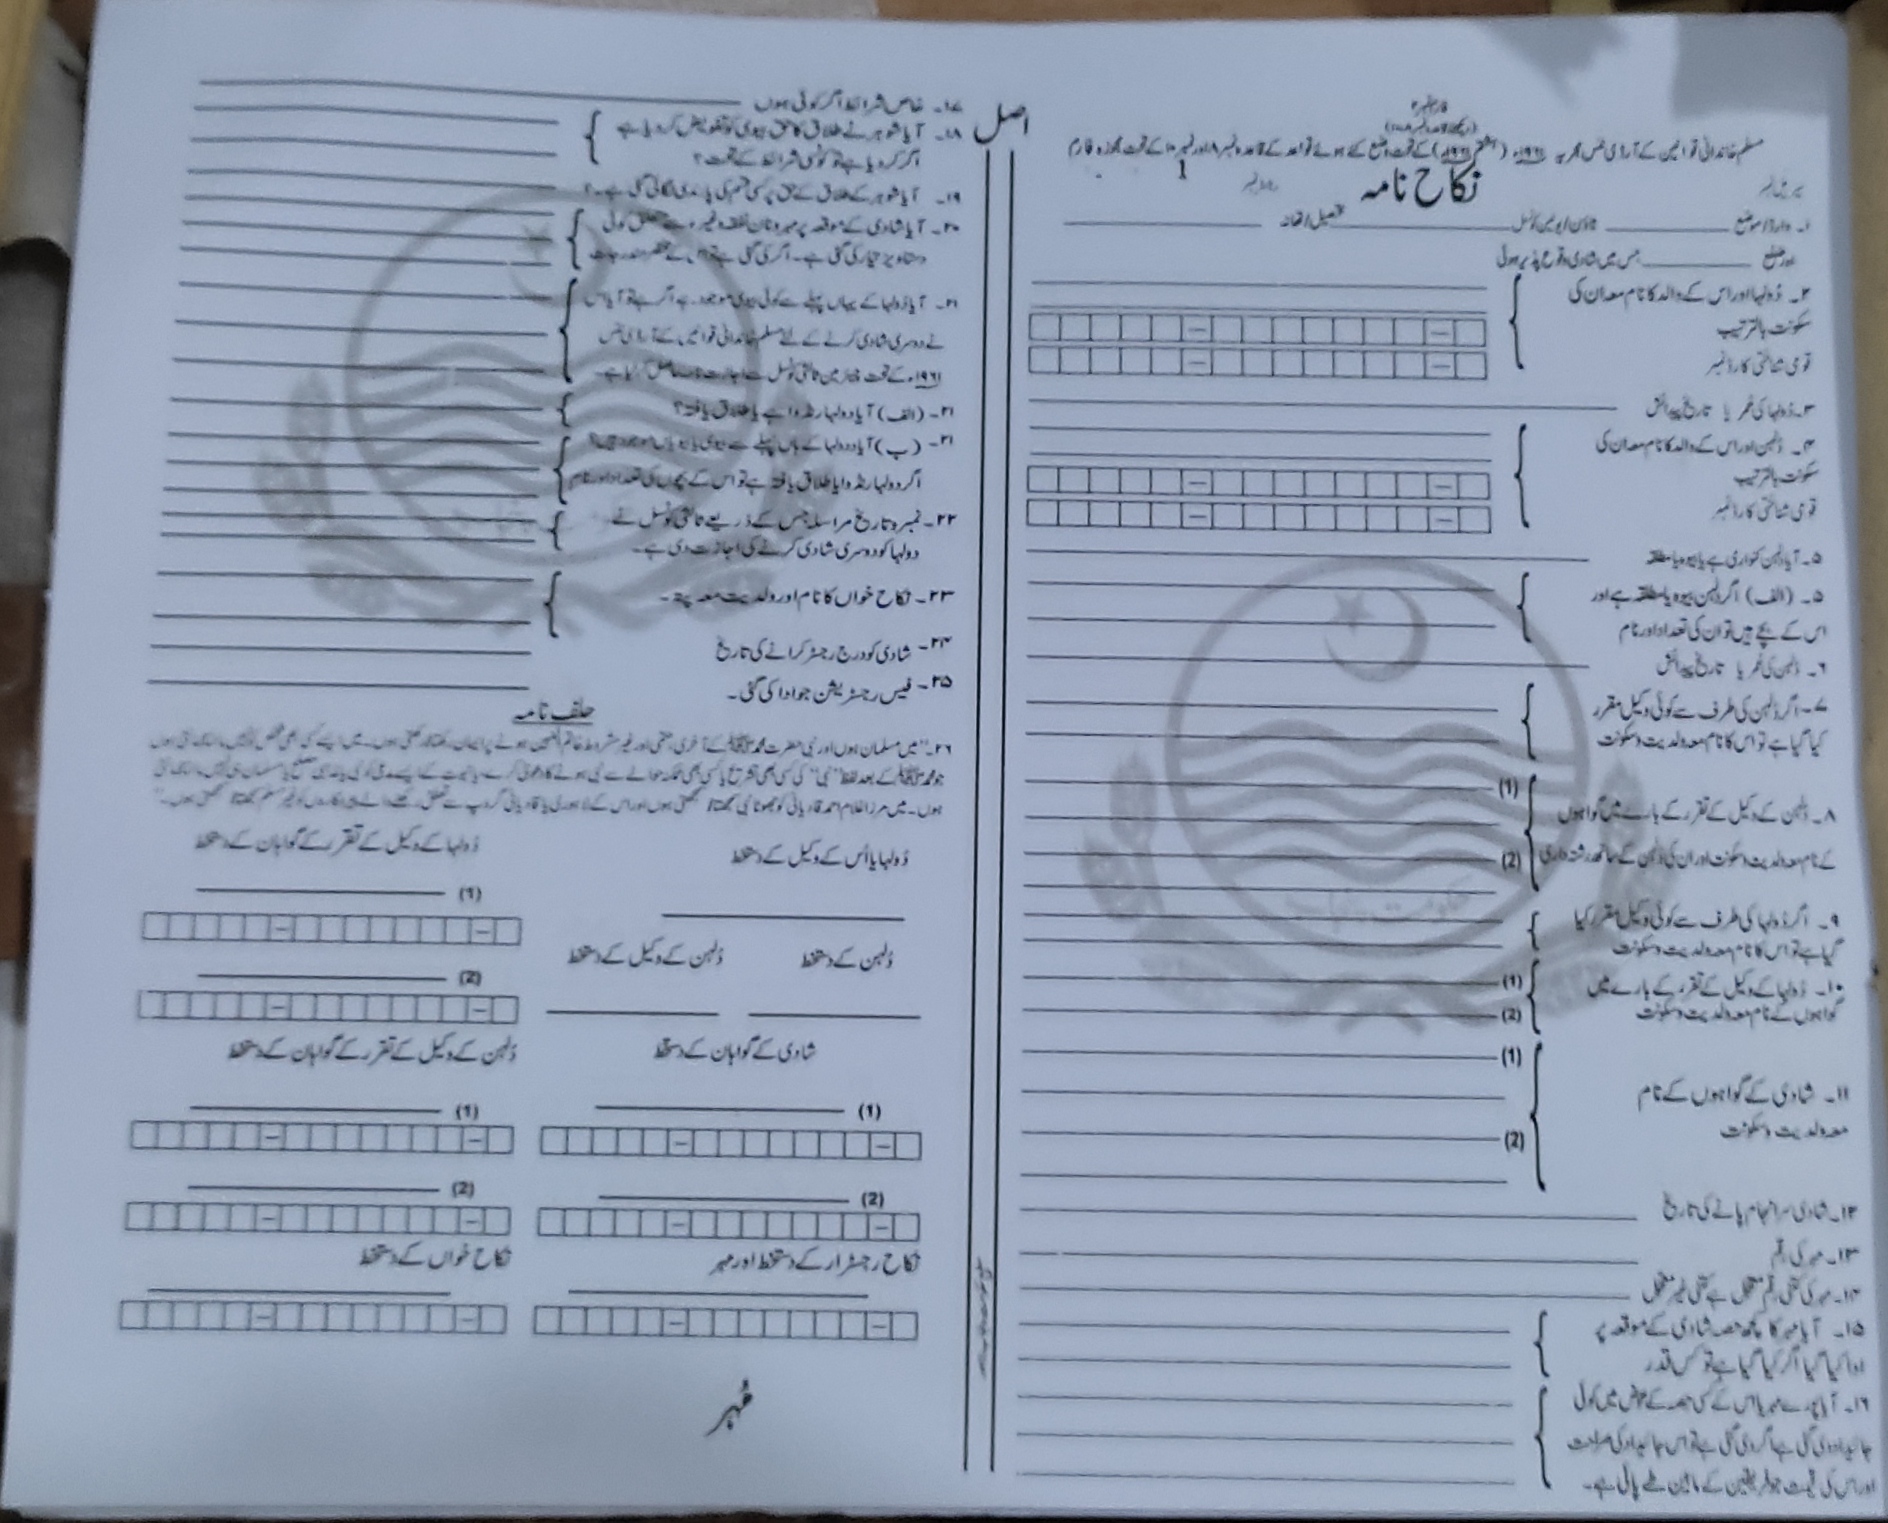 فارم نمبر ۲
مسلم خاندانی قوانین کے آرڈی ننس مجریہ ۱۹۶۱ء (ہشتم ۱۹۶۱ء) کے تحت وضع کئے ہوئے قواعد کے قاعدہ نمبر ۸ اور نمبر ۱۰ کے تحت مجوزہ فارم
نکاح نامہ
1
سیریل نمبر
۱۔ وارڈ/موضع ٹاؤن/یونین کونسل تحصیل/تھانہ
اور ضلع جس میں شادی وقوع پذیر ہوئی
۲۔ دُولہا اور اس کے والد کا نام معہ ان کی
سکونت بالترتیب
قومی شناختی کارڈ نمبر
۳۔ دُولہا کی عُمر یا تاریخ پیدائش
۴۔ دُلہن اور اس کے والد کا نام معہ ان کی
سکونت بالترتیب
قومی شناختی کارڈ نمبر
۵۔ آیا دُلہن کنواری ہے یا بیوہ یا مطلقہ
۵۔ (الف) اگر دُلہن بیوہ یا مطلقہ ہے اور
اس کے بچے ہیں تو ان کی تعداد اور نام
۶۔ دُلہن کی عُمر یا تاریخ پیدائش
۷۔ اگر دُلہن کی طرف سے کوئی وکیل مقرر
کیا گیا ہے تو اس کا نام معہ ولدیت و سکونت
(1)
۸۔ دُلہن کے وکیل کے تقرر کے بارے میں گواہوں
کے نام معہ ولدیت و سکونت اور ان کی دُلہن کے ساتھ رشتہ داری (2)
۹۔ اگر دُولہا کی طرف سے کوئی وکیل مقرر کیا
گیا ہے تو اس کا نام معہ ولدیت و سکونت
۱۰۔ دُولہا کے وکیل کے تقرر کے بارے میں (1)
گواہوں کے نام معہ ولدیت و سکونت (2)
(1)
۱۱۔ شادی کے گواہوں کے نام
معہ ولدیت و سکونت (2)
۱۲۔ شادی سرانجام پانے کی تاریخ
۱۳۔ مہر کی رقم
۱۴۔ مہر کی کتنی رقم معجل ہے کتنی غیر معجل
۱۵۔ آیا مہر کا کچھ حصہ شادی کے موقعہ پر
ادا کیا گیا اگر کیا گیا ہے تو کس قدر
۱۶۔ آیا پورے مہر یا اس کے کسی حصہ کے عوض میں کوئی
جائیداد دی گئی ہے اگر دی گئی ہے تو اس جائیداد کی صراحت
اور اس کی قیمت جو فریقین کے مابین طے پائی ہے۔
اصل
۱۷۔ خاص شرائط اگر کوئی ہوں
۱۸۔ آیا شوہر نے طلاق کا حق بیوی کو تفویض کر دیا ہے
اگر کر دیا ہے تو کونسی شرائط کے تحت؟
۱۹۔ آیا شوہر کے طلاق کے حق پر کسی قسم کی پابندی لگائی گئی ہے۔؟
۲۰۔ آیا شادی کے موقعہ پر مہر و نان نفقہ وغیرہ سے متعلق کوئی
دستاویز تیار کی گئی ہے۔ اگر کی گئی ہے تو اس کے مختصر مندرجات
۲۱۔ آیا دُولہا کے یہاں پہلے سے کوئی بیوی موجود ہے اگر ہے تو آیا اس
نے دوسری شادی کرنے کے لئے مسلم خاندانی قوانین کے آرڈی ننس
۱۹۶۱ء کے تحت ثالثی کونسل سے اجازت نامہ حاصل کر لیا ہے۔
۲۱۔ (الف) آیا دولہا رنڈوا ہے یا طلاق یافتہ؟
۲۱۔ (ب) آیا دولہا کے ہاں پہلے سے بیوی یا بیویاں موجود ہیں؟
اگر دولہا رنڈوا یا طلاق یافتہ ہے تو اس کے بچوں کی تعداد اور نام
۲۲۔ نمبر و تاریخ مراسلہ جس کے ذریعے ثالثی کونسل نے
دولہا کو دوسری شادی کرنے کی اجازت دی ہے۔
۲۳۔ نکاح خواں کا نام اور ولدیت معہ پتہ۔
۲۴۔ شادی کو درج رجسٹر کرانے کی تاریخ
۲۵۔ فیس رجسٹریشن جو ادا کی گئی۔
حلف نامہ
۲۶۔ "میں مسلمان ہوں اور نبی حضرت محمد ﷺ کے آخری حتمی اور غیر مشروط خاتم النبیین ہونے پر ایمان رکھتا/رکھتی ہوں۔ میں ایسے کسی بھی شخص کو نہیں مانتا/مانتی ہوں
جو محمد ﷺ کے بعد لفظ "نبی" کی کسی بھی تشریح یا کسی بھی حوالے سے نبی ہونے کا دعویٰ کرے یا نبوت کے ایسے مدعی کو نبی یا مذہبی مصلح یا مسلمان ہی نہیں مانتا/مانتی
ہوں۔ میں مرزا غلام احمد قادیانی کو جھوٹا نبی سمجھتا/سمجھتی ہوں اور اس کے لاہوری یا قادیانی گروپ سے تعلق رکھنے والے پیروکاروں کو غیر مسلم سمجھتا/سمجھتی ہوں۔"
دُولہا یا اُس کے وکیل کے دستخط
دُولہا کے وکیل کے تقرر کے گواہان کے دستخط
(1)
دُلہن کے دستخط دُلہن کے وکیل کے دستخط
(2)
شادی کے گواہان کے دستخط
دُلہن کے وکیل کے تقرر کے گواہان کے دستخط
(1) (1)
(2) (2)
نکاح رجسٹرار کے دستخط اور مہر
نکاح خواں کے دستخط
مُہر